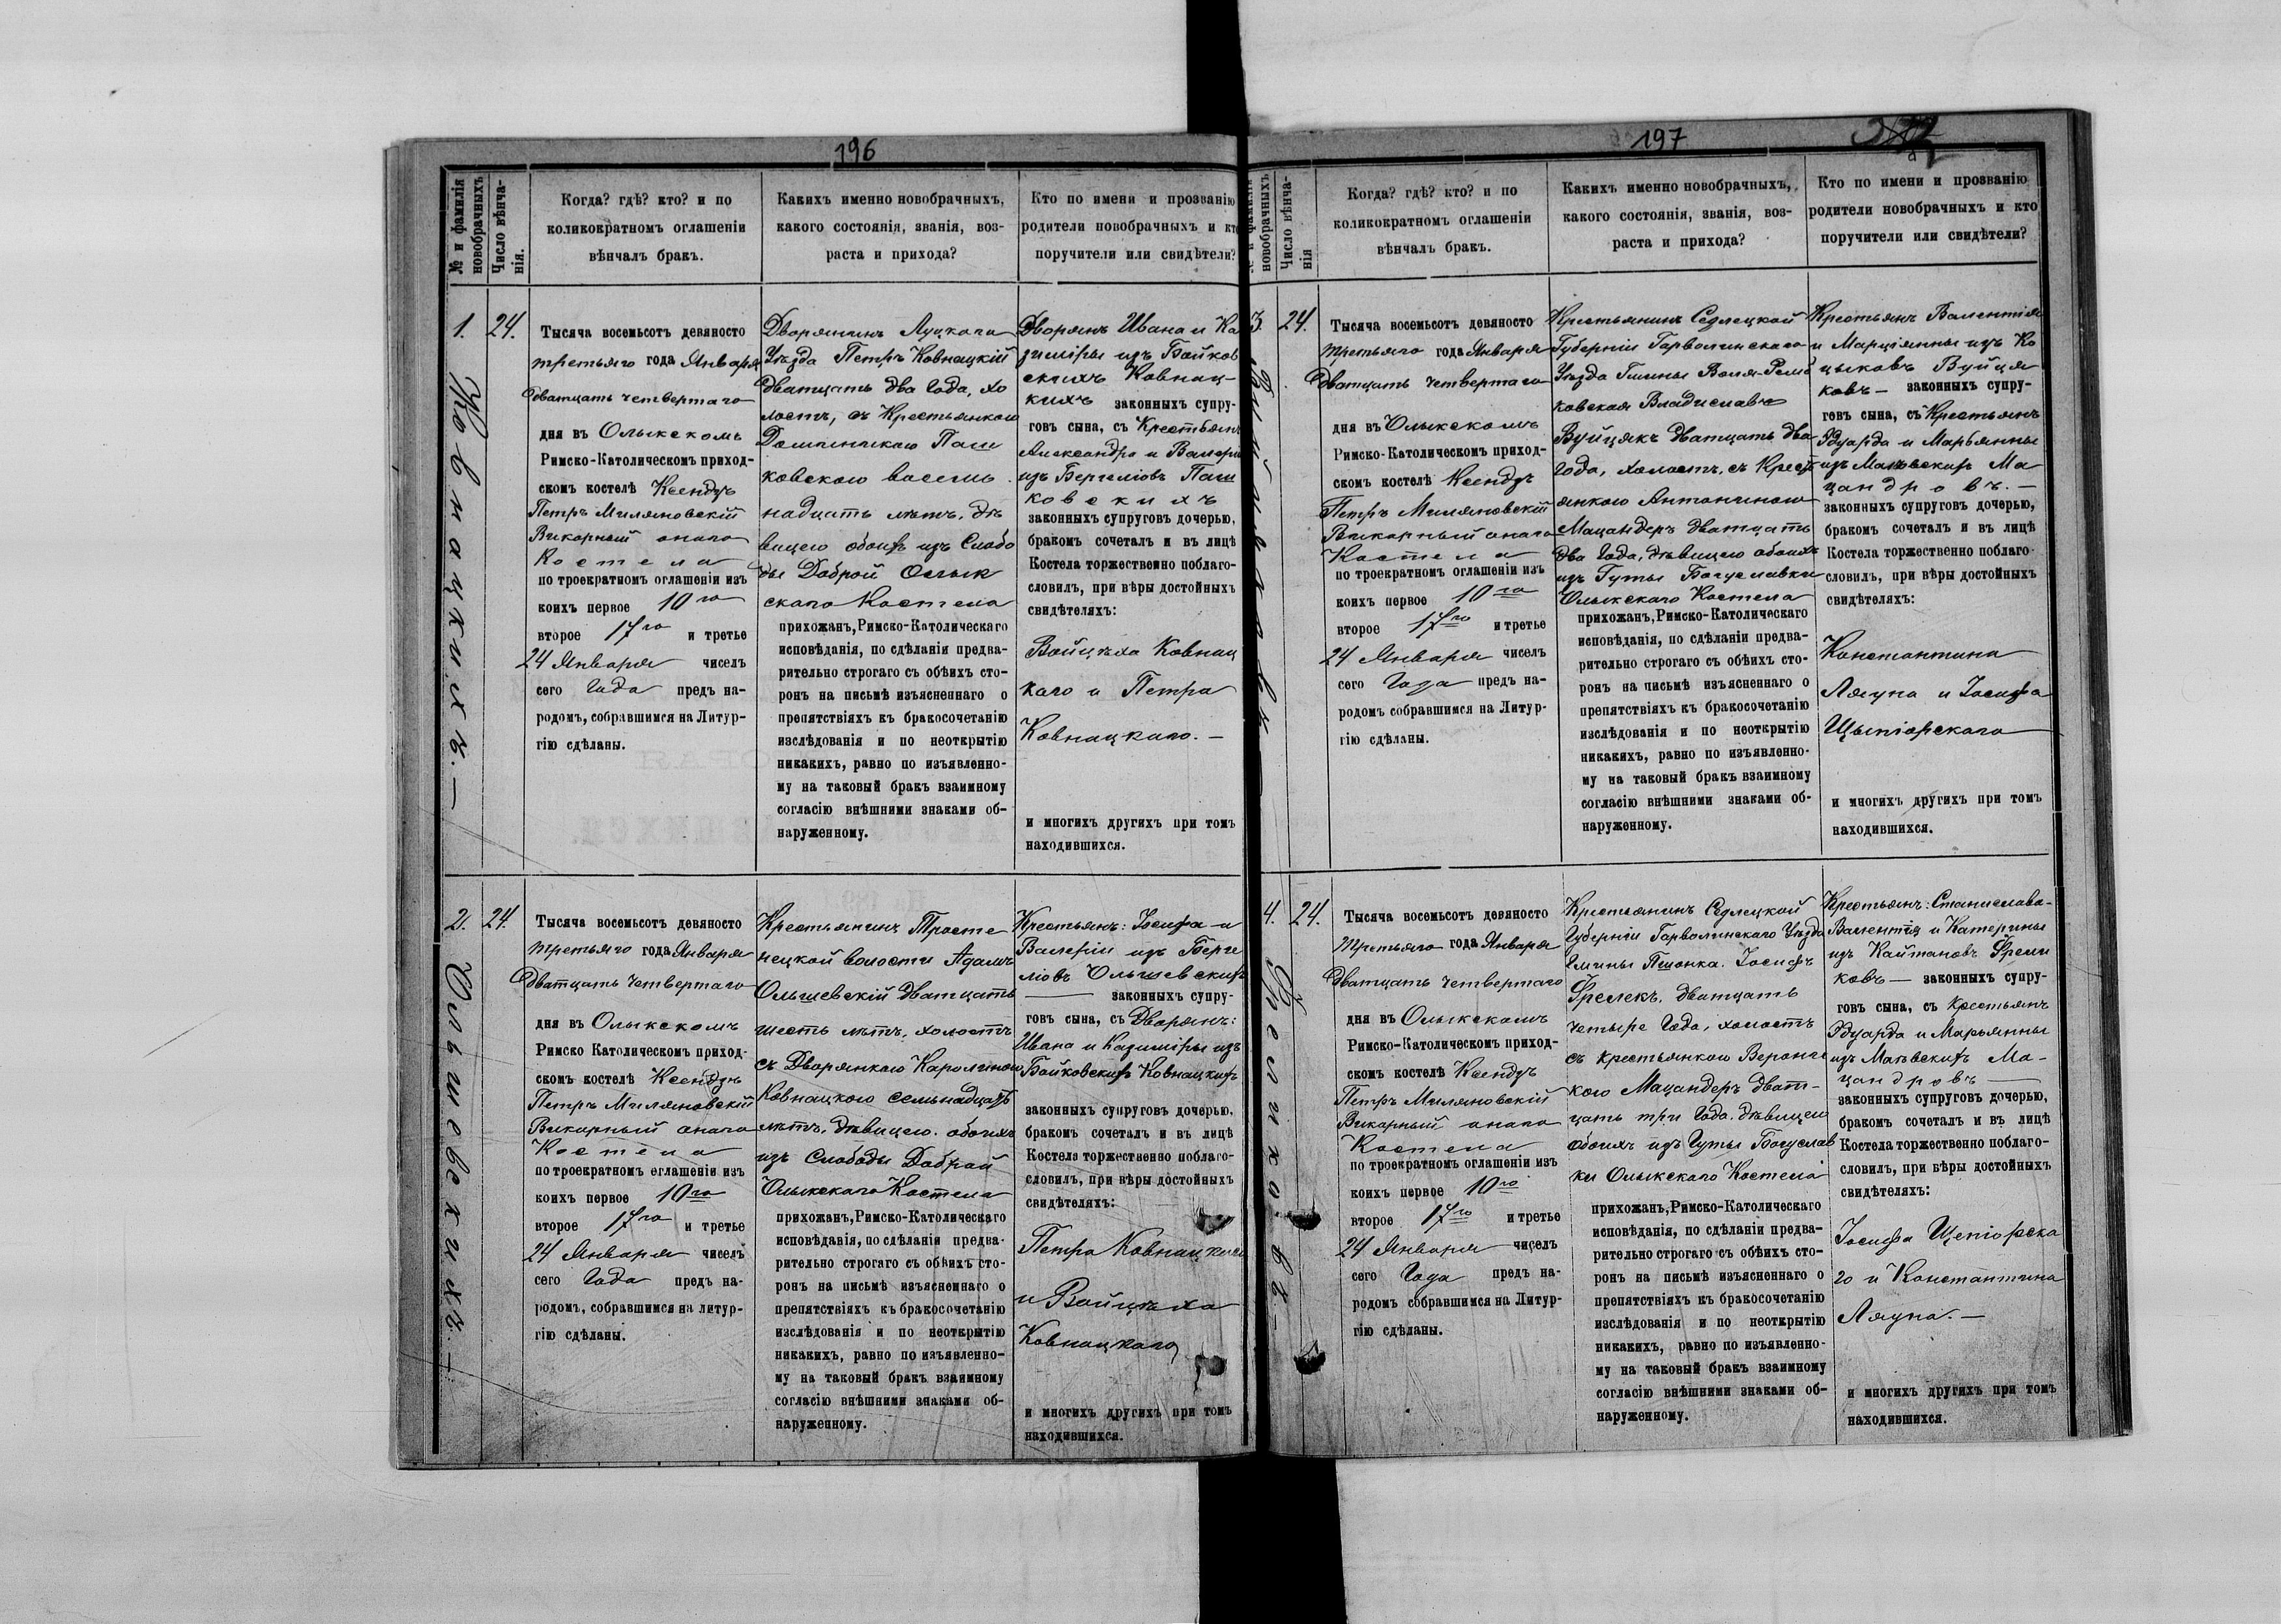 196
№ и фамилія новобрачныхъ
Число вѣнча-
нія.
Когда? гдѣ? кто? и по
коликократномъ оглашеніи
вѣнчалъ бракъ.
Какихъ именно новобрачныхъ,
какого состоянія, званія, воз-
раста и прихода?
Кто по имени и прозванію
родители новобрачныхъ и кто
поручители или свидѣтели?
1.
Ковнацкихъ. —
24.
Тысяча восемьсотъ девяносто
третьяго года Января
Дватцать четвертаго
дня въ Олыкскомъ
Римско-Католическомъ приход-
скомъ костелѣ Ксендзъ
Петръ Миляновскій
Викарный онаго
Костела
по троекратномъ оглашеніи изъ
коихъ первое 10го
второе 17го и третье
24 Января чиселъ
сего Года предъ на-
родомъ, собравшимся на Литур-
гію сдѣланы.
Дворянинъ Луцкаго
Уѣзда Петръ Ковнацкій
дватцать два Года, хо
лостъ, съ Крестьянкою
Домининкою Паш
ковскою восемь
надцать лѣтъ, дѣ
вицею обоихъ изъ Слобо
ды Доброй Олык
скаго Костела
прихожанъ, Римско-Католическаго
исповѣданія, по сдѣланіи предва-
рительно строгаго съ обѣихъ сто-
ронъ на письмѣ изъясненнаго о
препятствіяхъ къ бракосочетанію
изслѣдованія и по неоткрытію
никакихъ, равно по изъявленно-
му на таковый бракъ взаимному
согласію внѣшними знаками об-
наруженному.
Дворянъ Ивана и Ка
зиміры изъ Бойков
скихъ Ковнац-
кихъ законныхъ супру-
говъ сына, съ Крестьянъ
Александра и Валеріи
изъ Бергеліовъ Паш
ковскихъ
законныхъ супруговъ дочерью,
бракомъ сочеталъ и въ лицѣ
Костела торжественно поблаго-
словилъ, при вѣры достойныхъ
свидѣтеляхъ:
Войцѣха Ковнац
каго и Петра
Ковнацкаго. —
и многихъ другихъ при томъ
находившихся.
2.
Ольшевскихъ. —
24.
Тысяча восемьсотъ девяносто
третьяго года Января
Дватцать четвертаго
дня въ Олыкскомъ
Римско Католическомъ приход-
скомъ костелѣ Ксендзъ
Петръ Миляновскій
Викарный онаго
Костела
по троекратномъ оглашеніи изъ
коихъ первое 10го
второе 17го и третье
24 Января чиселъ
сего Года предъ на-
родомъ, собравшимся на литур-
гію сдѣланы.
Крестьянинъ Тросте
нецкой волости Адамъ
Ольшевскій дватцать
шесть лѣтъ, холостъ
съ Дворянкою Каролиною
Ковнацкою семьнадцать
лѣтъ, дѣвицею. обоихъ
изъ Слободы Доброй
Олыкскаго Костела
прихожанъ, Римско-Католическаго
исповѣданія, по сдѣланіи предва-
рительно строгаго съ обѣихъ сто-
ронъ на письмѣ изъясненнаго о
препятствіяхъ къ бракосочетанію
изслѣдованія и по неоткрытію
никакихъ, равно по изъявленно-
му на таковый бракъ взаимному
согласію внѣшними знаками об-
наруженному.
Крестьянъ: Іосифа и
Валеріи изъ Берге
ліовъ Ольшевскихъ
— законныхъ супру-
говъ сына, съ Дворянъ:
Ивана и Казиміры изъ
Бойковскихъ Ковнацкихъ
законныхъ супруговъ дочерью,
бракомъ сочеталъ и въ лицѣ
Костела торжественно поблаго-
словилъ, при вѣры достойныхъ
свидѣтеляхъ:
Петра Ковнацкаго
и Войцѣха
Ковнацкаго
и многихъ другихъ при томъ
находившихся.
197
новобрачныхъ
Число вѣнча-
нія
Когда? гдѣ? кто? и по
коликократномъ оглашеніи
вѣнчалъ бракъ.
Какихъ именно новобрачныхъ,
какого состоянія, званія, воз-
раста и прихода?
Кто по имени и прозванію
родители новобрачныхъ и кто
поручители или свидѣтели?
3.
24.
Тысяча восемьсотъ девяносто
третьяго года Января
Дватцать четвертаго
дня въ Олыкскомъ
Римско-Католическомъ приход-
скомъ костелѣ Ксендзъ
Петръ Миляновскій
Викарный онаго
Костела
по троекратномъ оглашеніи изъ
коихъ первое 10го
второе 17го и третье
24 Января чиселъ
сего Года предъ на-
родомъ собравшимся на Литур-
гію сдѣланы.
Крестьянинъ Седлецкой
Губерніи Гарволинскаго
Уѣзда Гмины Воля-Рем
ковская Владиславъ
Вуйцякъ дватцать два
Года, холостъ, съ Кресть
янкою Антониною
Мацандеръ дватцать
два Года, дѣвицею обоихъ
изъ Гуты Богуславки
Олыкскаго Костела
прихожанъ, Римско-Католическаго
исповѣданія, по сдѣланіи предва-
рительно строгаго съ обѣихъ сто-
ронъ на письмѣ изъясненнаго о
препятствіяхъ къ бракосочетанію
изслѣдованія и по неоткрытію
никакихъ, равно по изъявленно-
му на таковый бракъ взаимному
согласію внѣшними знаками об-
наруженному.
Крестьянъ Валентія
и Марціянны изъ Ко
цыковъ Вуйця
ковъ — законныхъ супру-
говъ сына, съ Крестьянъ
Эдуарда и Марьянны
изъ Маковскихъ Ма
цандровъ. —
законныхъ супруговъ дочерью,
бракомъ сочеталъ и въ лицѣ
Костела торжественно поблаго-
словилъ, при вѣры достойныхъ
свидѣтеляхъ:
Константина
Ляуна и Іосифа
Щыпіорскаго
и многихъ другихъ при томъ
находившихся.
4.
Фрелиховъ. —
24.
Тысяча восемьсотъ девяносто
третьяго года Января
Дватцать четвертаго
дня въ Олыкскомъ
Римско-Католическомъ приход-
скомъ костелѣ Ксендзъ
Петръ Миляновскій
Викарный онаго
Костела
по троекратномъ оглашеніи изъ
коихъ первое 10го
второе 17го и третье
24 Января чиселъ
сего Года предъ на-
родомъ собравшимся на Литур-
гію сдѣланы.
Крестьянинъ Седлецкой
Губерніи Гарволинскаго Уѣзда
Гмины Пшонка. Іосифъ
Фрелекъ, дватцать
четыре Года, холостъ
съ крестьянкою Верони
кою Мацандеръ дват-
цать три Года. дѣвицею
обоихъ изъ Гуты Богуслав
ки Олыкскаго Костела
прихожанъ, Римско-Католическаго
исповѣданія, по сдѣланіи предва-
рительно строгаго съ обѣихъ сто-
ронъ на письмѣ изъясненнаго о
препятствіяхъ къ бракосочетанію
изслѣдованія и по неоткрытію
никакихъ, равно по изъявленно-
му на таковый бракъ взаимному
согласію внѣшними знаками об-
наруженному.
Крестьянъ: Станислава-
Валентія и Катерины
изъ Кайтановъ Фрели
ковъ — законныхъ супру-
говъ сына, съ Крестьянъ
Эдуарда и Марьянны
изъ Маковскихъ Ма-
цандровъ —
законныхъ супруговъ дочерью,
бракомъ сочеталъ и въ лицѣ
Костела торжественно поблаго-
словилъ, при вѣры достойныхъ
свидѣтеляхъ:
Іосифа Щепіорска
го и Константина
Ляуна. —
и многихъ другихъ при томъ
находившихся.